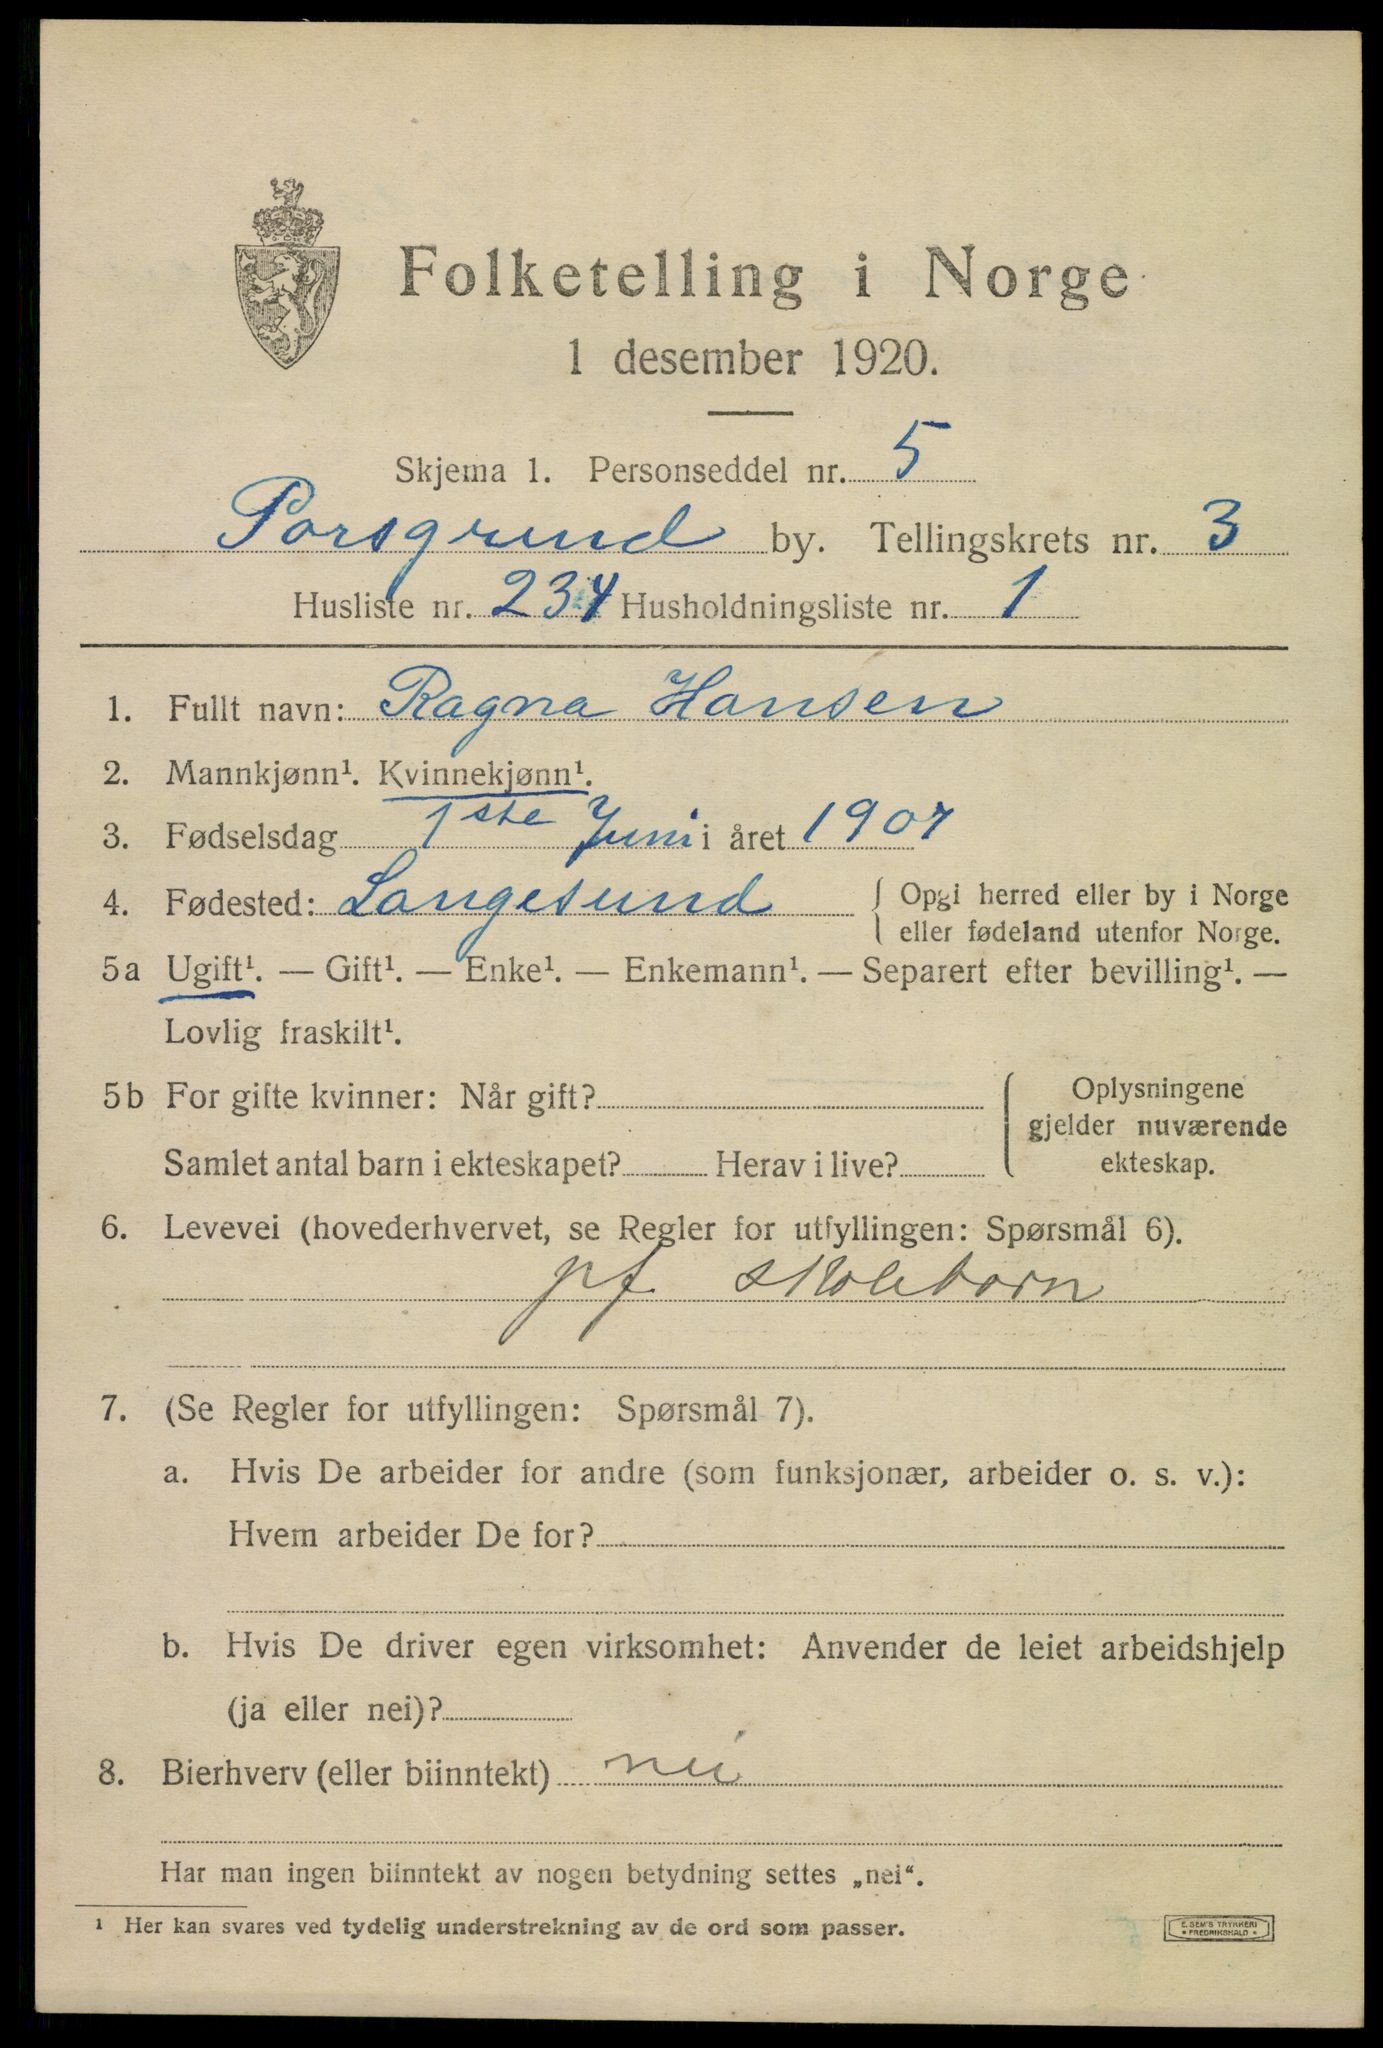 Folketelling i Norge
1 desember 1920.
Skjema 1. Personseddel nr. 5
Porsgrund by. Tellingskrets nr. 3
Husliste nr. 234 Husholdningsliste nr. 1
1. Fullt navn: Ragna Hansen
2. Mannkjønn¹. Kvinnekjønn¹.
3. Fødselsdag 1ste Juni i året 1907
4. Fødested: Langesund { Opgi herred eller by i Norge
eller fødeland utenfor Norge.
5a Ugift¹. — Gift¹. — Enke¹. — Enkemann¹. — Separert efter bevilling¹. —
Lovlig fraskilt¹.
5b For gifte kvinner: Når gift? Oplysningene
gjelder nuværende
Samlet antal barn i ekteskapet? Herav i live? ekteskap.
6. Levevei (hovederhvervet, se Regler for utfyllingen: Spørsmål 6).
pf. skolebarn
7. (Se Regler for utfyllingen: Spørsmål 7).
a. Hvis De arbeider for andre (som funksjonær, arbeider o. s. v.):
Hvem arbeider De for?
b. Hvis De driver egen virksomhet: Anvender de leiet arbeidshjelp
(ja eller nei)?
8. Bierhverv (eller biinntekt) nei
Har man ingen biinntekt av nogen betydning settes „nei“.
¹ Her kan svares ved tydelig understrekning av de ord som passer.
E. SEM'S TRYKKERI
• FREDRIKSHALD •